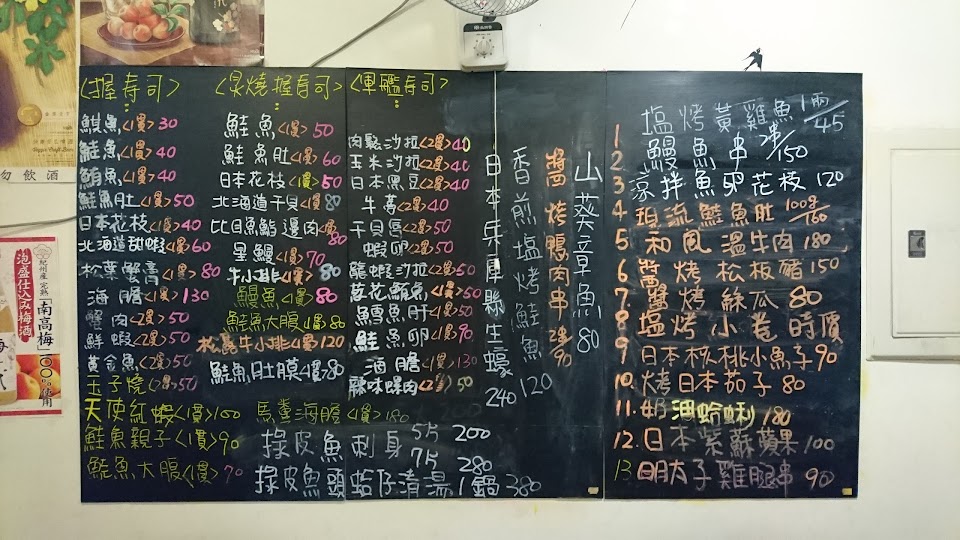 勿飲酒
泡盛仕込み梅酒
紀州産完熟
南高梅
100%使用
<握寿司>
鯕魚<1貫>30
鮭魚<1貫>40
鮪魚<1貫>40
鮭魚肚<1貫>50
日本花枝<1貫>40
北海道甜蝦<1貫>60
松葉蟹膏<1貫>80
海膽<1貫>130
蟹肉<2貫>50
鮮蝦<2貫>50
黃金魚<2貫>50
玉子燒<2貫>50
天使紅蝦<1貫>100
鮭魚親子<1貫>90
鮑魚大腹<1貫>70
<炙燒握寿司>
鮭魚<1貫>50
鮭魚肚<1貫>60
日本花枝<1貫>50
北海道干貝<1貫>80
比目魚鰭邊肉<1貫>80
星鰻<1貫>70
牛小排<1貫>80
鰻魚<1貫>80
鮭魚大腹<1貫>80
松露牛小排<1貫>120
鮭魚肚膜<1貫>80
馬糞海膽<1貫>180
<軍艦寿司>
肉鬆沙拉<2貫>40
玉米沙拉<2貫>40
日本黑豆<2貫>40
牛蒡<2貫>40
干貝唇<2貫>50
蝦卵<2貫>50
龍蝦沙拉<2貫>50
蔥花鮪魚<2貫>50
鱈魚肝<2貫>50
鮭魚卵<2貫>90
海膽<1貫>130
辣味螺肉<2貫>50
剝皮魚刺身5片200
7片280
剝皮魚頭蛤仔清湯1鍋380
日本兵庫縣生蠔240
香煎塩烤鮭魚120
醬烤鴨肉串2串90
山葵章魚80
1塩烤黃雞魚1兩/45
2鰻魚串2串/150
3涼拌魚卵花枝120
4現流鮭魚肚100g/160
5和風溫牛肉180
6醬烤松板豬150
7醬烤絲瓜80
8塩烤小卷時價
9日本核桃小魚子90
10.烤日本茄子80
11.奶油蛤蜊180
12.日本紫蘇蘋果100
13明太子雞腿串90